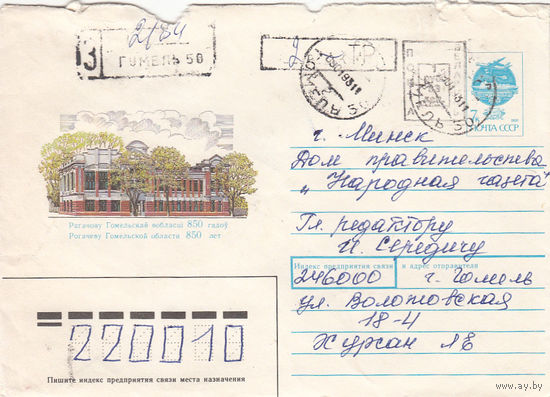 З
2184
ГОМЕЛЬ 50
ПОЧТА СССР
г. Минск
Дом правительства
"Народная газета"
Гл. редактору
И. Середичу
Рагачову Гомельскай вобласці 850 гадоў
Рогачеву Гомельской области 850 лет
Индекс предприятия связи и адрес отправителя
246000 г. Гомель
ул. Волотовская
18-4
Хурсан ЛЕ
220010
Пишите индекс предприятия связи места назначения
ay.by